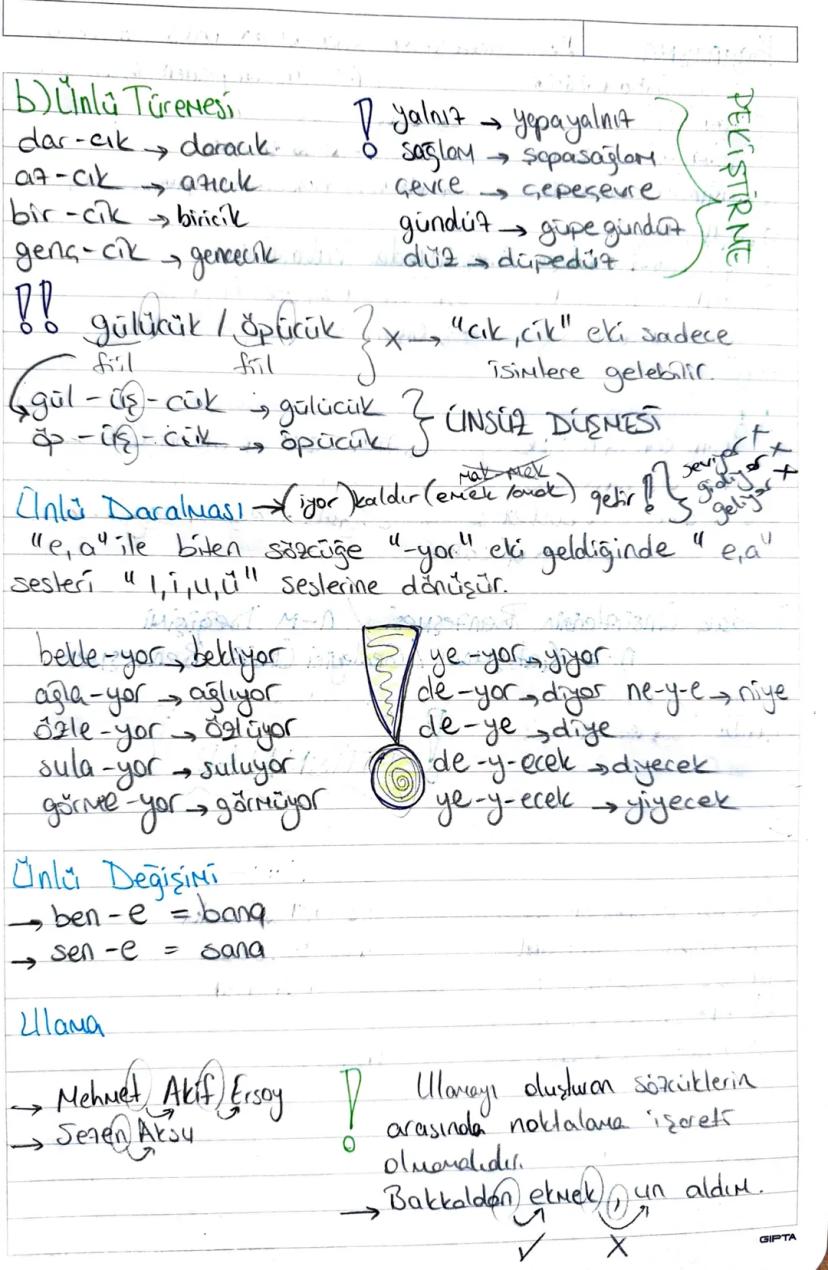 b) Ünlü Türemesi
dar-cık → daracık
az-cık → azıcık
bir-cik → biricik
genç-cik → gencecik
! yalnız → yapayalnız
sağlam → sapasağlam
çevre → çepeçevre
gündüz → güpegündüz
düz → düpedüz
PEKİŞTİRME
!! gülücük / öpücük } x → "cık, cik" eki sadece
fiil fiil isimlere gelebilir.
gül - üş - cük → gülücük } ÜNSÜZ DÜŞMESİ
öp - üş - cük → öpücük
Ünlü Daralması → (iyor) kaldır (emek / amak) getir !
mak mek
seviyor x
gidiyor x
geliyor x
"e, a" ile biten sözcüğe "-yor" eki geldiğinde "e, a"
sesleri "ı, i, u, ü" seslerine dönüşür.
bekle-yor → bekliyor
ağla-yor → ağlıyor
özle-yor → özlüyor
sula-yor → suluyor
görme-yor → görmüyor
! ye-yor → yiyor
de-yor → diyor ne-y-e → niye
de-ye → diye
de-y-ecek → diyecek
ye-y-ecek → yiyecek
Ünlü Değişimi
→ ben-e = bana
→ sen-e = sana
Ulama
→ Mehmet Akif Ersoy
→ Sezen Aksu
! Ulamayı oluşturan sözcüklerin
arasında noktalama işareti
olmamalıdır.
→ Bakkaldan ekmek, un aldım.
✓ X
GIPTA